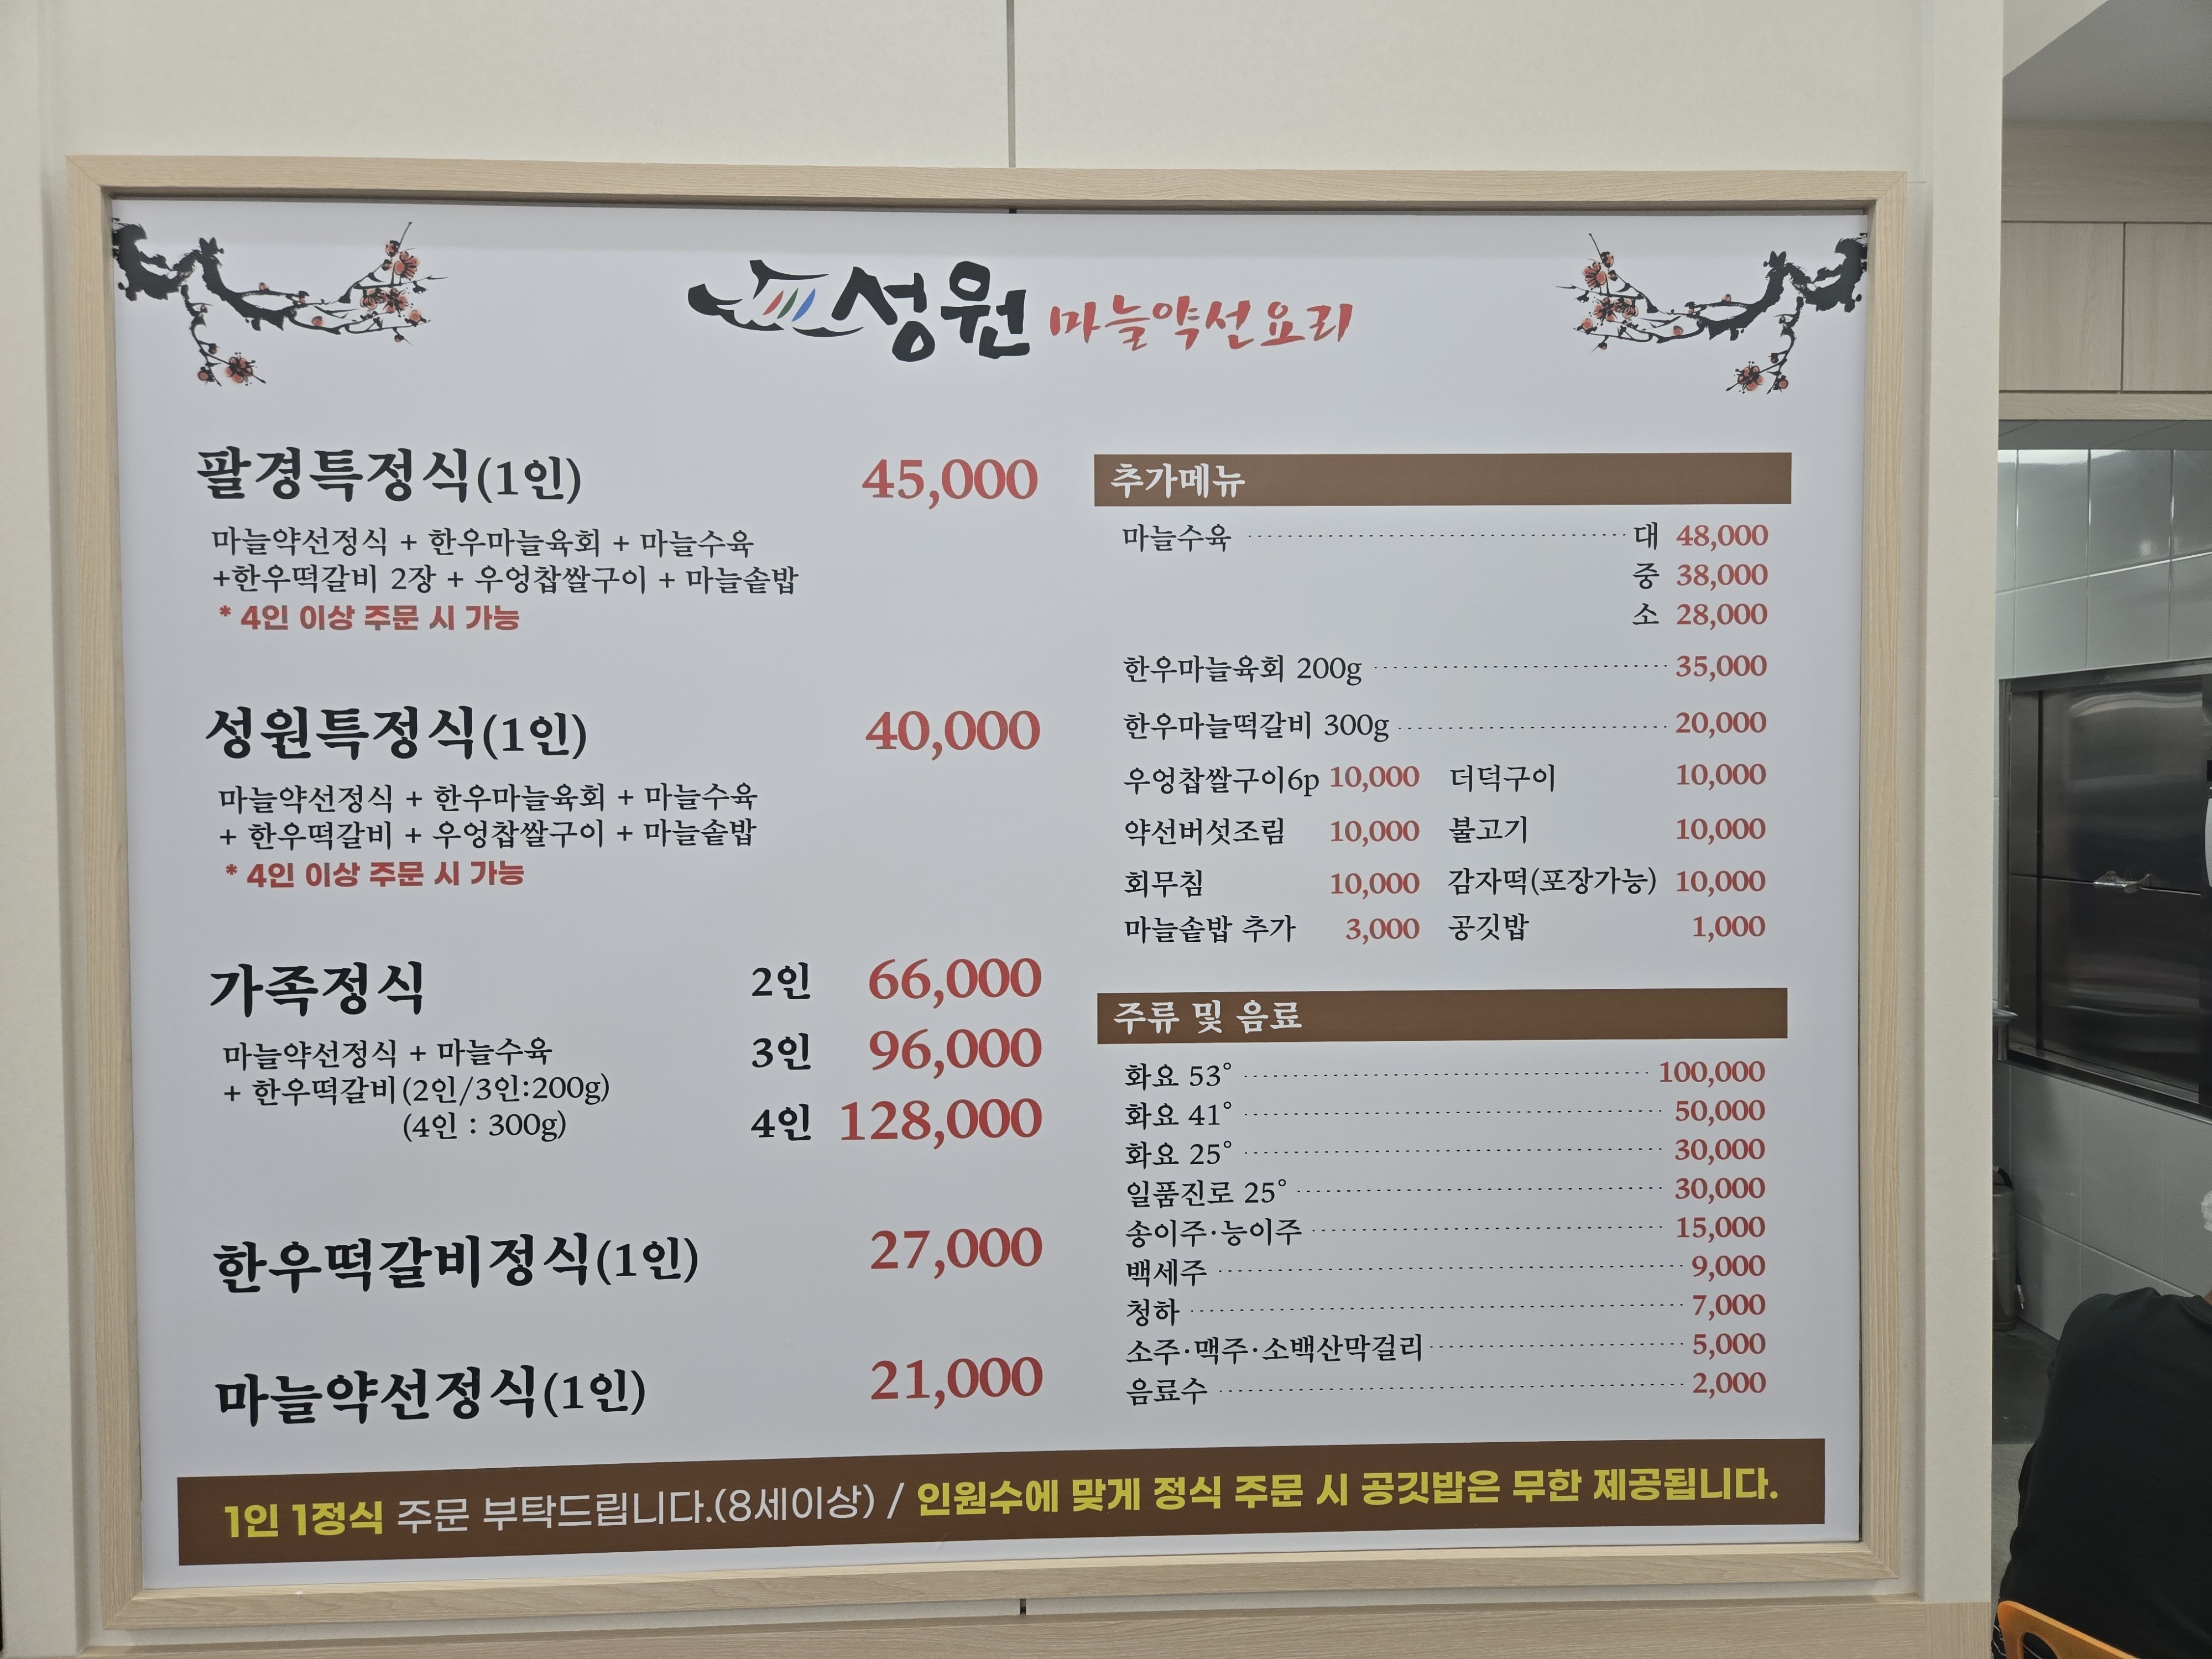 성원 마늘약선요리
팔경특정식(1인) 45,000
마늘약선정식 + 한우마늘육회 + 마늘수육
+한우떡갈비 2장 + 우엉찹쌀구이 + 마늘솥밥
* 4인 이상 주문 시 가능
성원특정식(1인) 40,000
마늘약선정식 + 한우마늘육회 + 마늘수육
+ 한우떡갈비 + 우엉찹쌀구이 + 마늘솥밥
* 4인 이상 주문 시 가능
가족정식 2인 66,000
3인 96,000
4인 128,000
마늘약선정식 + 마늘수육
+ 한우떡갈비(2인/3인:200g)
(4인 : 300g)
한우떡갈비정식(1인) 27,000
마늘약선정식(1인) 21,000
추가메뉴
마늘수육 대 48,000
중 38,000
소 28,000
한우마늘육회 200g 35,000
한우마늘떡갈비 300g 20,000
우엉찹쌀구이6p 10,000 더덕구이 10,000
약선버섯조림 10,000 불고기 10,000
회무침 10,000 감자떡(포장가능) 10,000
마늘솥밥 추가 3,000 공깃밥 1,000
주류 및 음료
화요 53° 100,000
화요 41° 50,000
화요 25° 30,000
일품진로 25° 30,000
송이주·능이주 15,000
백세주 9,000
청하 7,000
소주·맥주·소백산막걸리 5,000
음료수 2,000
1인 1정식 주문 부탁드립니다.(8세이상) / 인원수에 맞게 정식 주문 시 공깃밥은 무한 제공됩니다.